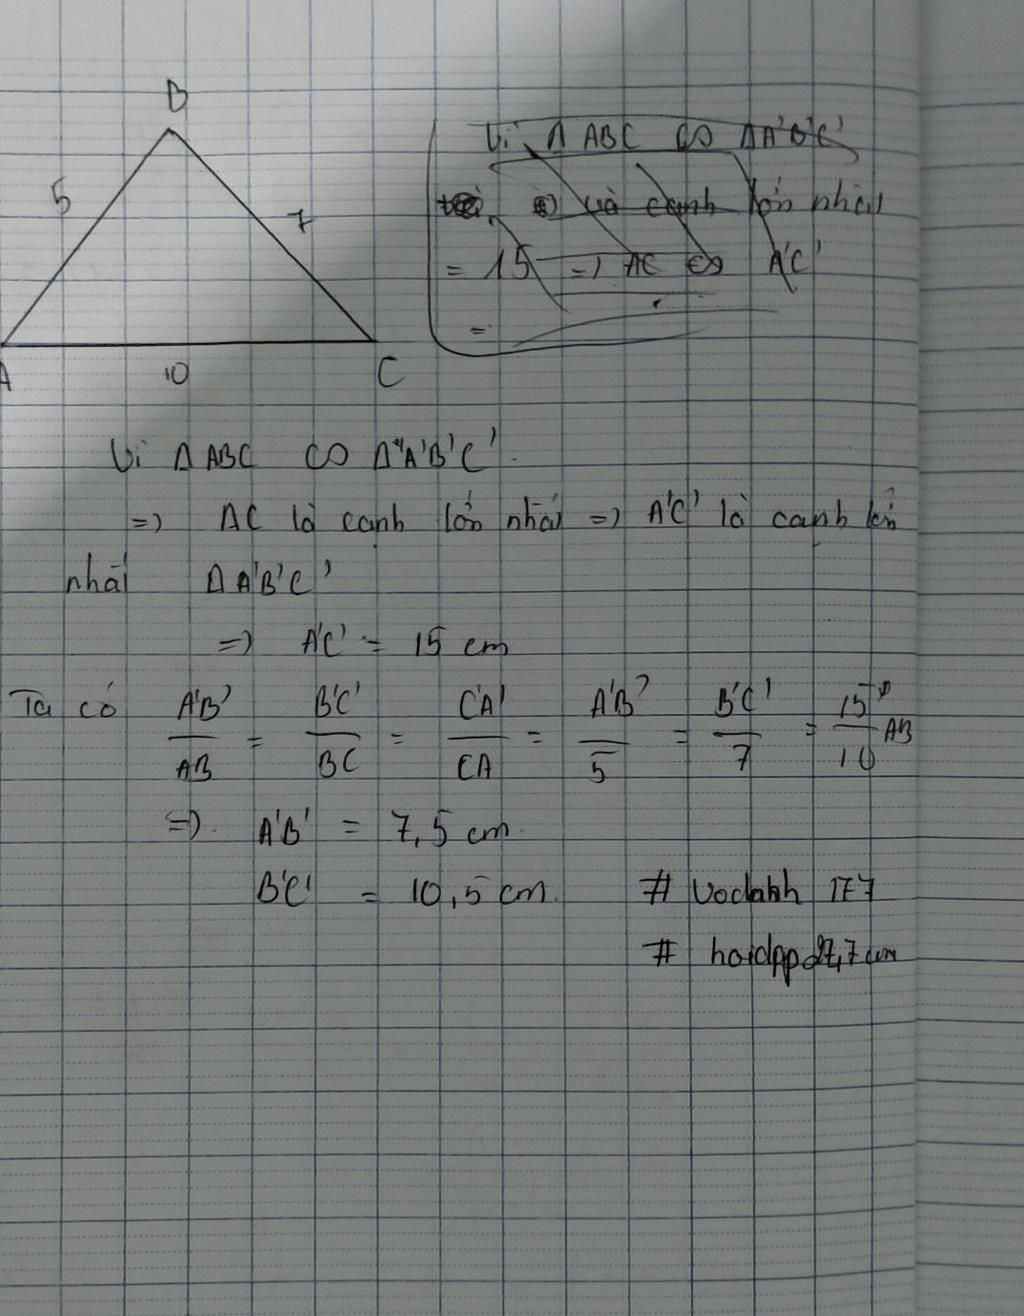 B
5
7
A
10
C
Vì Δ ABC ∽ ΔA'B'C'
và cạnh lớn nhất
= 15 => AC ∽ A'C'
=
Vì Δ ABC ∽ Δ A'B'C'.
=> AC là cạnh lớn nhất => A'C' là cạnh lớn
nhất Δ A'B'C'
=> A'C' = 15 cm
Ta có A'B'/AB = B'C'/BC = C'A'/CA = A'B'/5 = B'C'/7 = 15/10
=> A'B' = 7,5 cm
B'C' = 10,5 cm. # vodanh
#